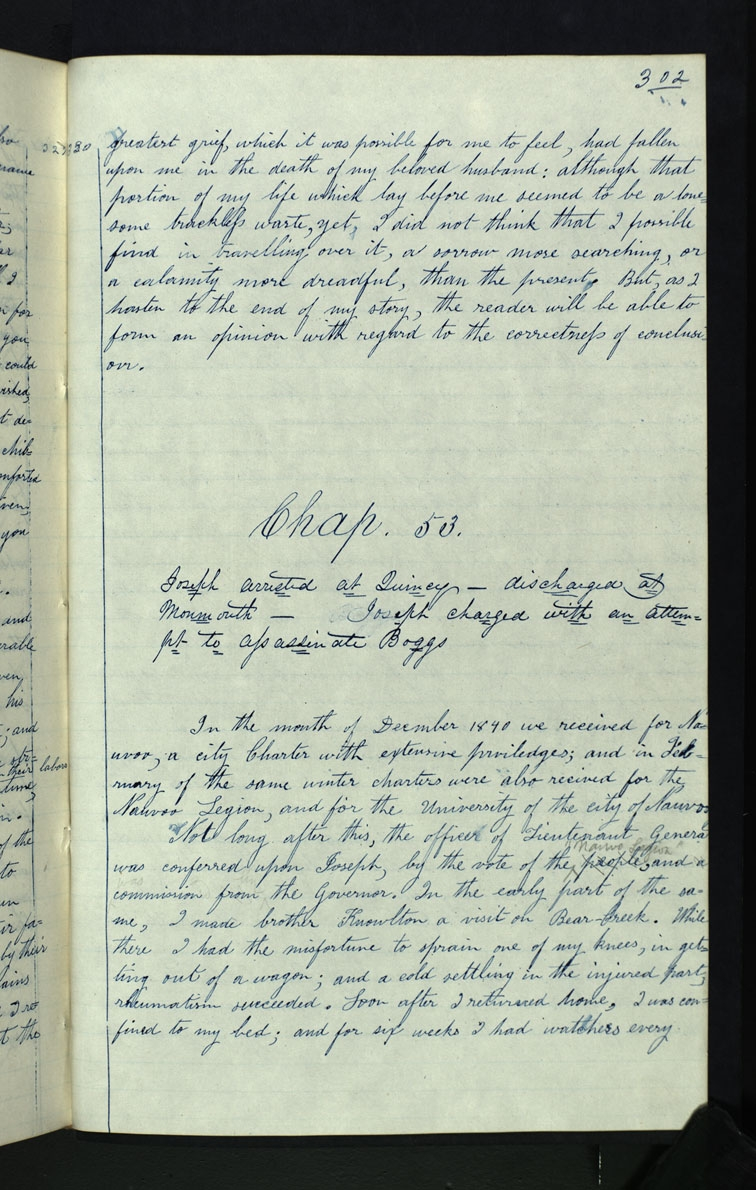 302
greatest grief, which it was possible for me to feel, had fallen
upon me in the death of my beloved husband: although that
portion of my life which lay before me seemed to be a lone=
some trackless waste, yet, I did not think that I possible
find in travelling over it, a sorrow more searching, or
a calamity more dreadful, than the present. But, as I
hasten to the end of my story, the reader will be able to
form an opinion with regard to the correctness of conclusi-
on.
Chap. 53.
Joseph arrested at Quincy — discharged at
Monmouth — Joseph charged with an attem=
pt to assassinate Boggs
In the month of December 1840 we received for Na=
uvoo, a city Charter with extensive priviledges; and in Feb-
ruary of the same winter charters were also received for the
Nauvoo Legion, and for the University of the city of Nauvoo
Not long after this, the office of Lieutenant General
Nauvoo Legion
was conferred upon Joseph, by the vote of the people, and a
commission from the Governor. In the early part of the sa=
me, I made brother Knowlton a visit on Bear-Creek. While
there I had the misfortune to sprain one of my knees, in get=
ting out of a wagon; and a cold settling in the injured part,
rheumatism succeeded. Soon after I returned home, I was con=
fined to my bed; and for six weeks I had watchers every